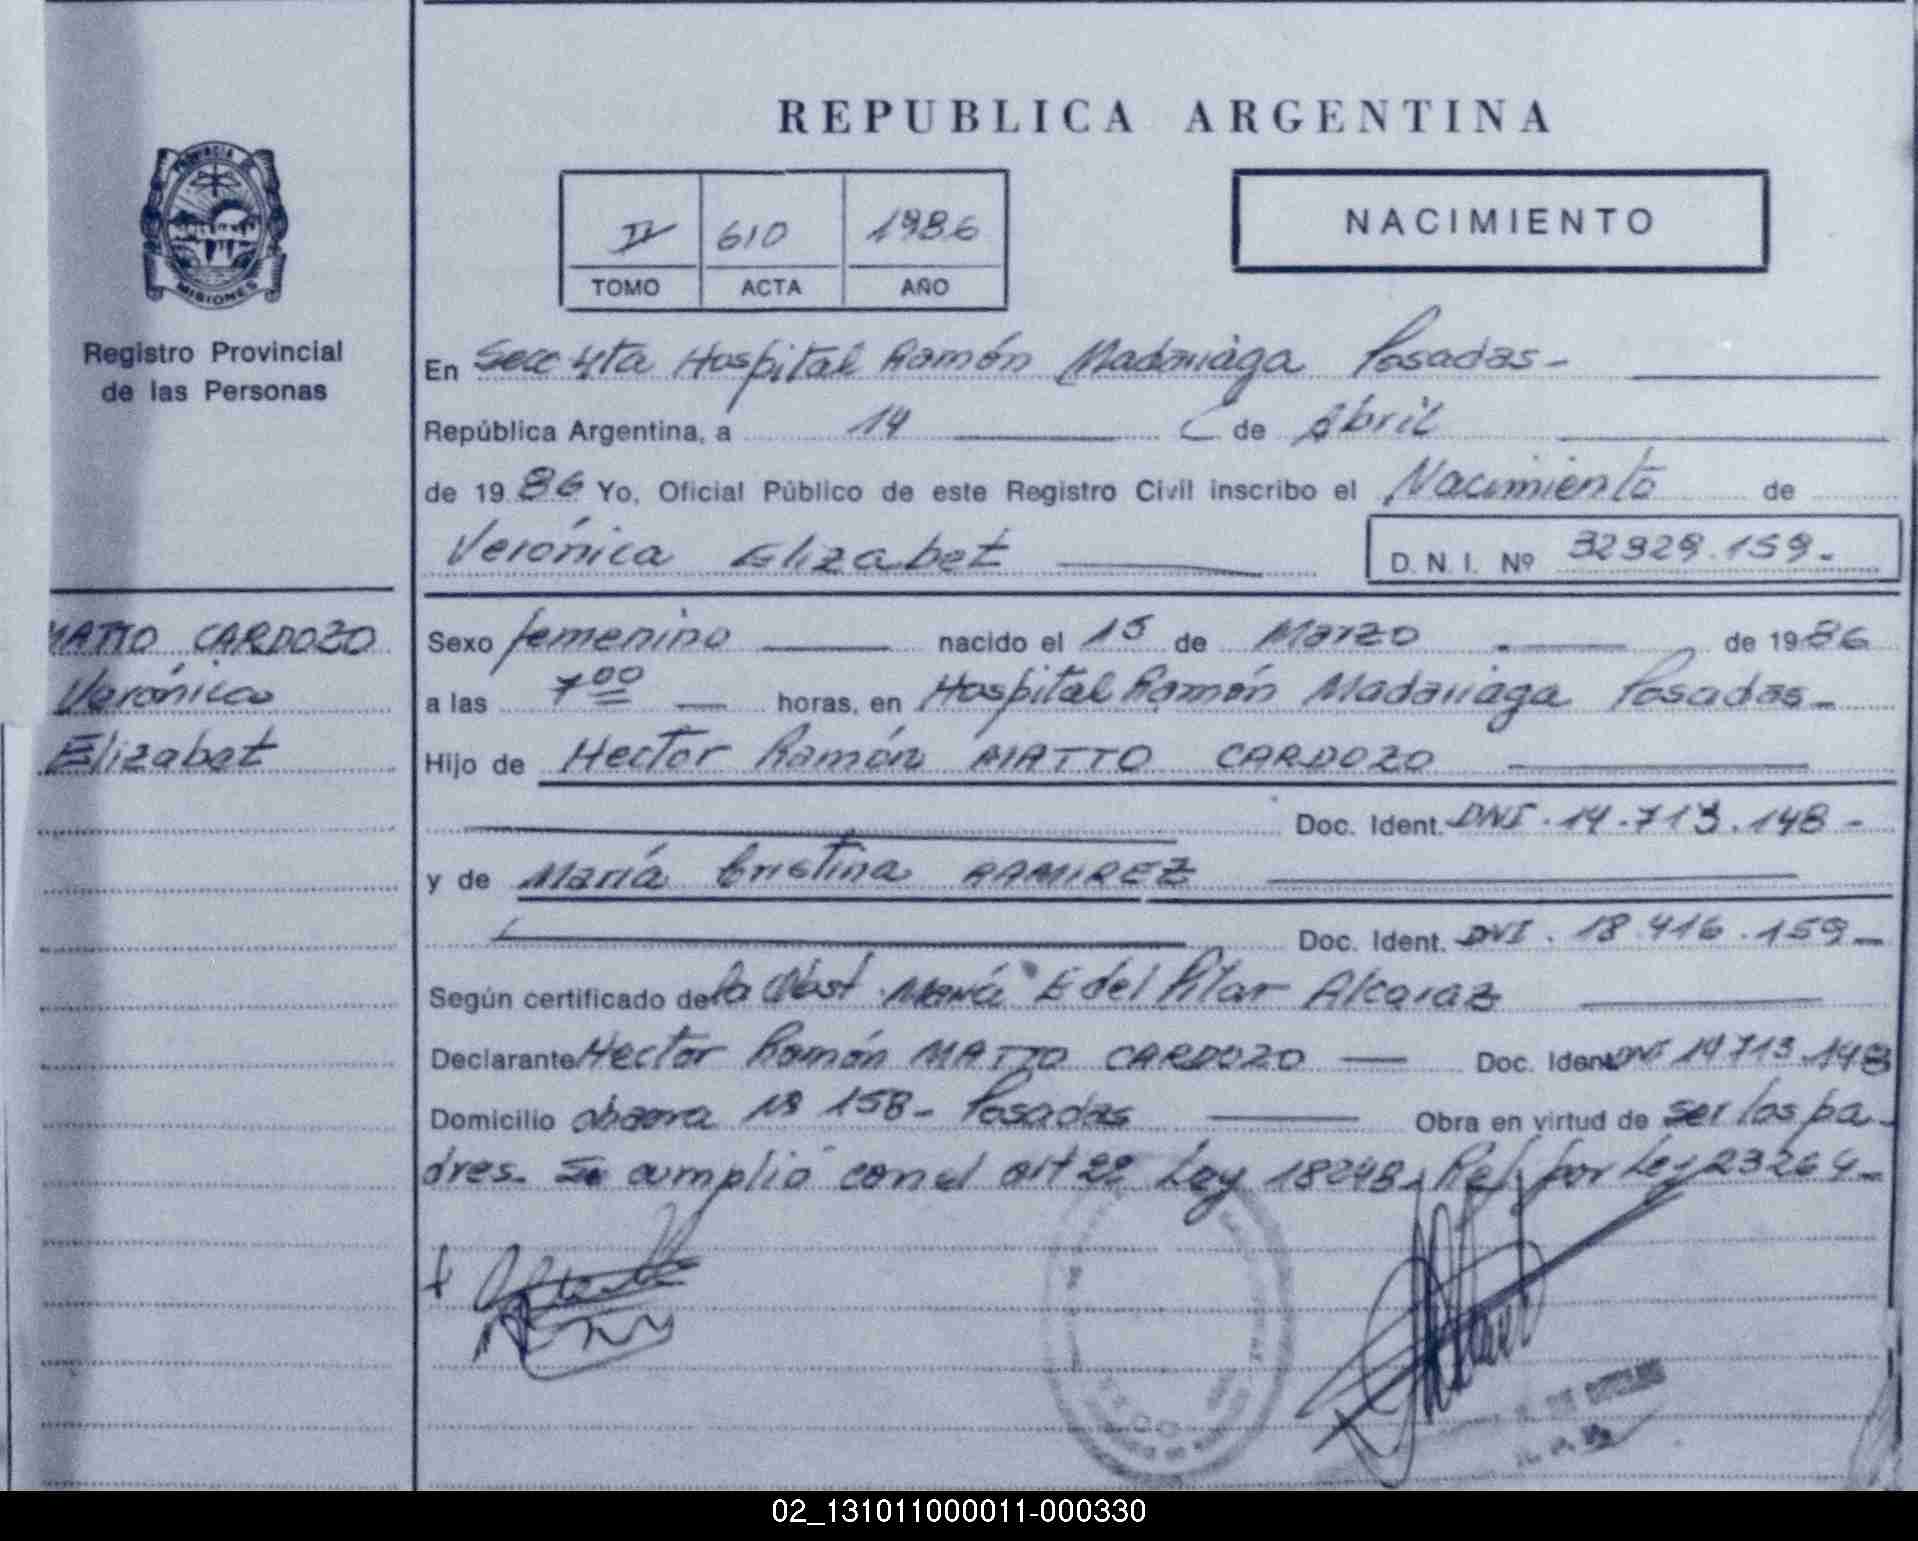 REPUBLICA ARGENTINA
PROVINCIA DE
MISIONES
Registro Provincial
de las Personas
II 610 1986
TOMO ACTA AÑO
NACIMIENTO
En Secc 4ta Hospital Ramón Madariaga Posadas-
República Argentina, a 14 de Abril
de 1986 Yo, Oficial Público de este Registro Civil inscribo el Nacimiento de
Verónica Elizabet
D. N. I. Nº 32329.159.-
MATTO CARDOZO
Verónica
Elizabet
Sexo femenino nacido el 15 de Marzo de 1986
a las 7 00 horas, en Hospital Ramón Madariaga Posadas-
Hijo de Hector Ramón MATTO CARDOZO
Doc. Ident. DNI. 14.713.148-
y de María Cristina RAMIREZ
Doc. Ident. DNI. 18.416.159-
Según certificado de la Obst. María E del Pilar Alcaraz
Declarante Hector Ramón MATTO CARDOZO Doc. Ident. DNI 14713.148
Domicilio Nº 158- Posadas Obra en virtud de ser los pa-
dres. Se cumplió con el art 22 Ley 18248. Ref. por Ley 23264-
02_131011000011-000330